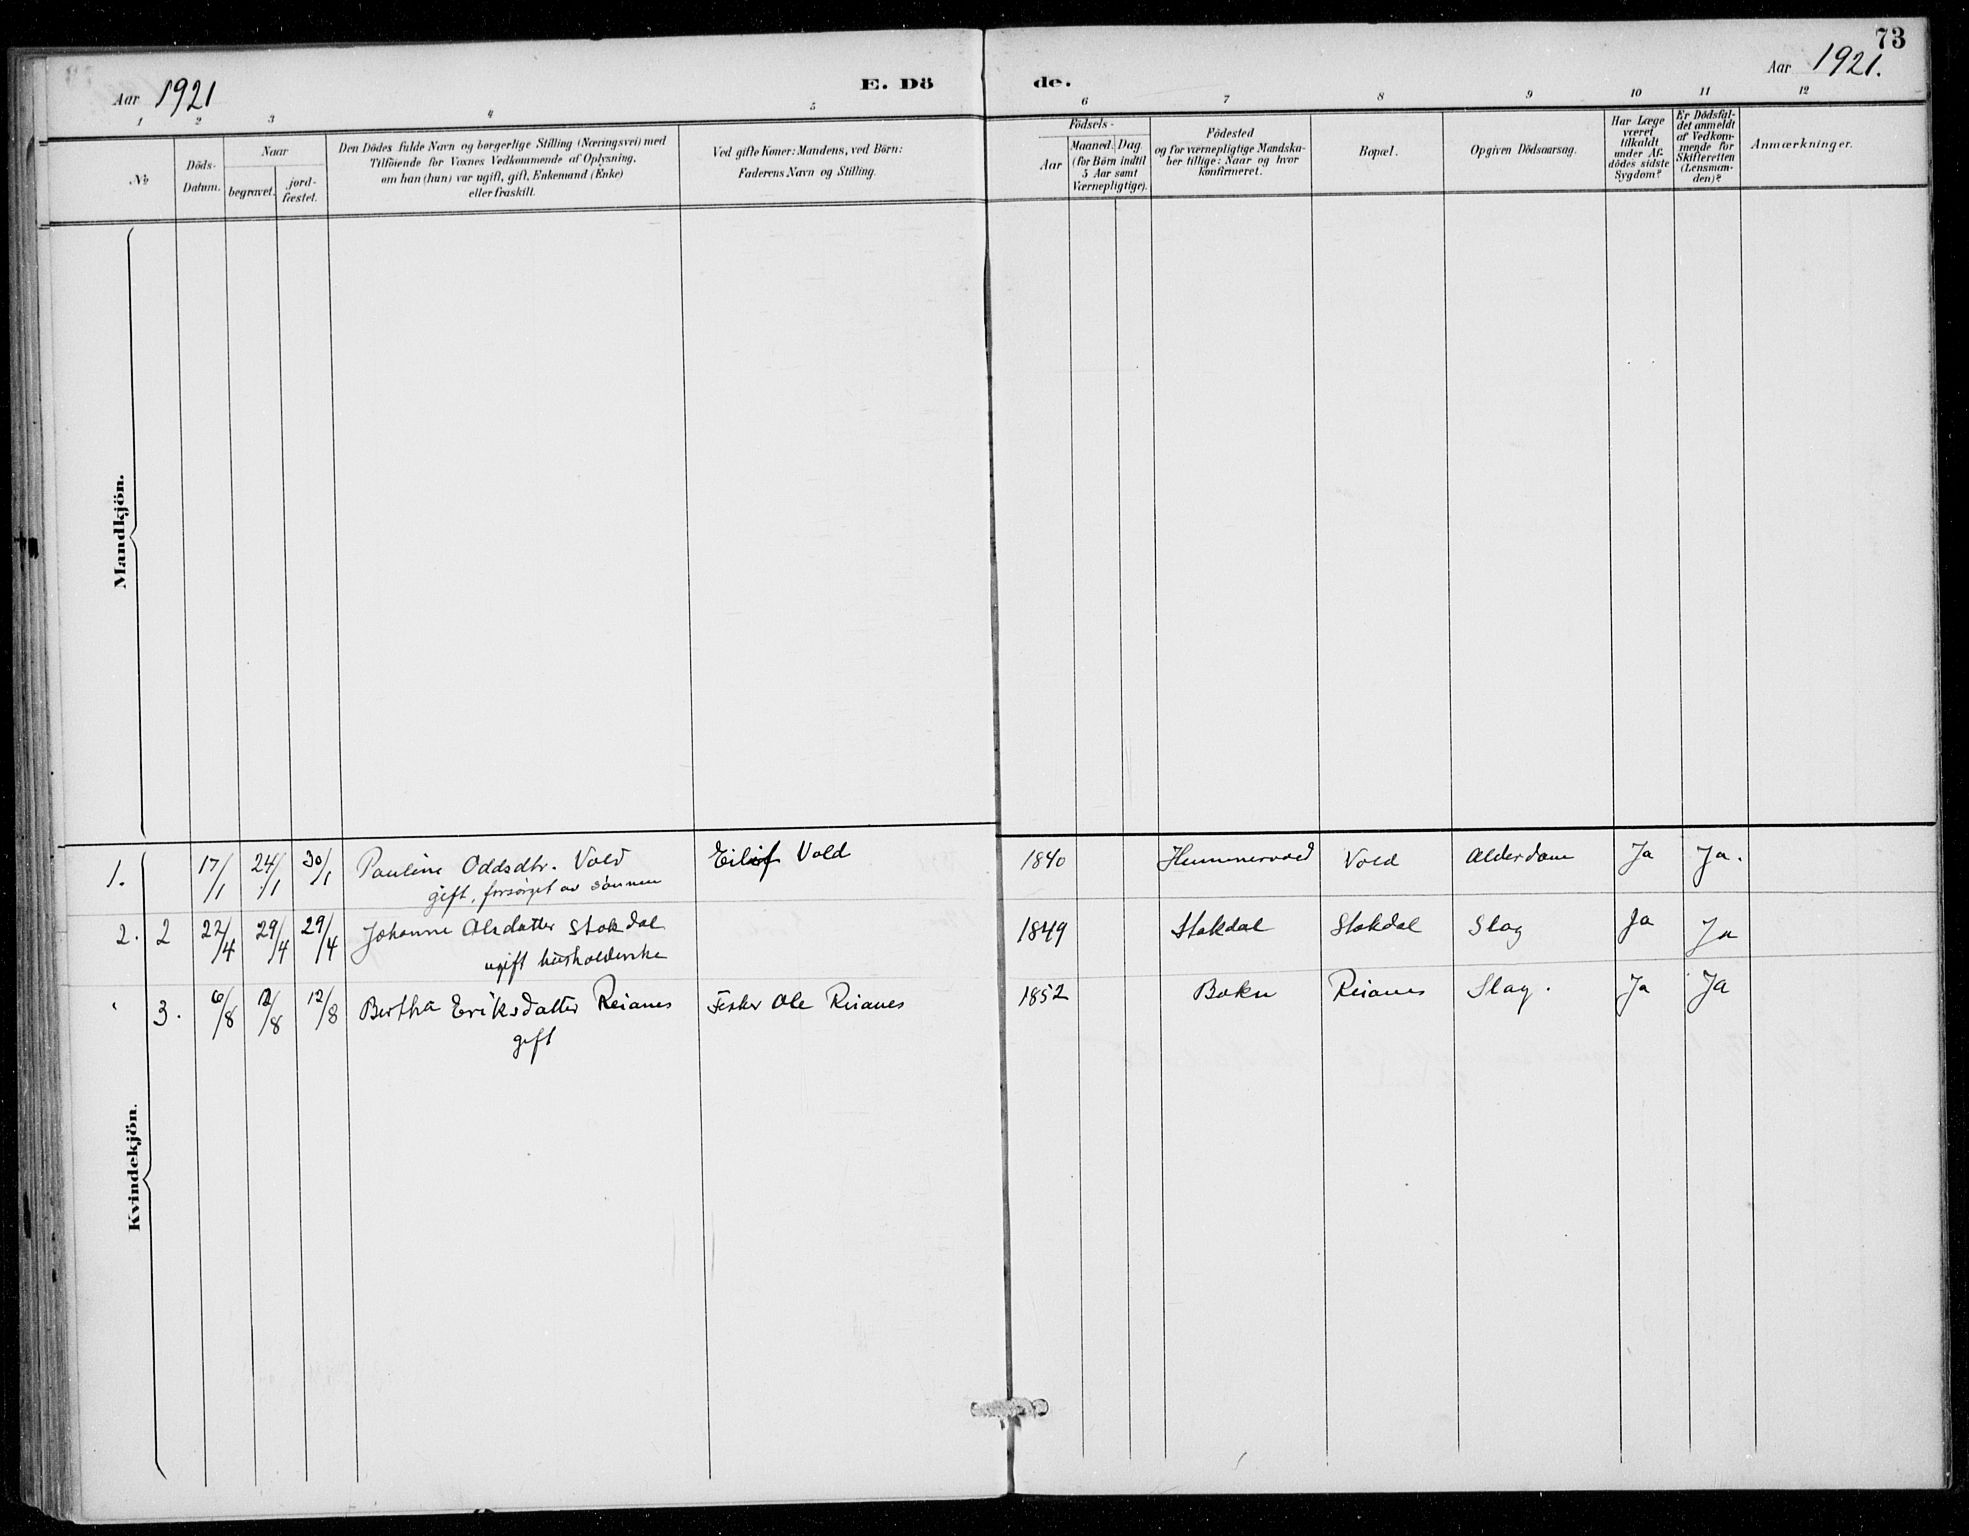 73
Aar 1921
E. Dö
de.
Aar 1921.
1 2 3 4 5 6 7 8 9 10 11 12
No
Döds-
Datum.
Naar
begravet.
jord-
fæstet.
Den Dödes fulde Navn og borgerlige Stilling (Næringsvei) med
Tilföiende for Voxnes Vedkommende af Oplysning,
om han (hun) var ugift, gift, Enkemand (Enke)
eller fraskilt.
Ved gifte Koner: Mandens, ved Börn:
Faderens Navn og Stilling.
Födsels-
Aar
Maaned. Dag
(for Börn indtil
5 Aar samt
Værnepligtige).
Födested
og for værnepligtige Mandska-
ber tillige: Naar og hvor
konfirmeret.
Bopæl.
Opgiven Dödsaarsag.
Har Læge
været
tilkaldt
under Af-
dödes sidste
Sygdom?
Er Dödsfal-
det anmeldt
af Vedkom-
mende for
Skifteretten
(Lensman-
den)?
Anmærkninger.
Mandkjön.
Kvindekjön.
1. 17/1 24/1 30/1 Pauline Oddsdtr. Vold Eilif Vold 1840 Hemmervold Vold Alderdom Ja Ja.
gift, forsörget av sönnen
2. 2 22/4 29/4 29/4 Johanne Olsdatter Stokdal 1849 Stokdal Stokdal Slag Ja Ja
ugift husholderske
3. 6/8 12/8 12/8 Bertha Eriksdatter Reianes Fisker Ole Reianes 1852 Bokn Reianes Slag. Ja Ja
gift